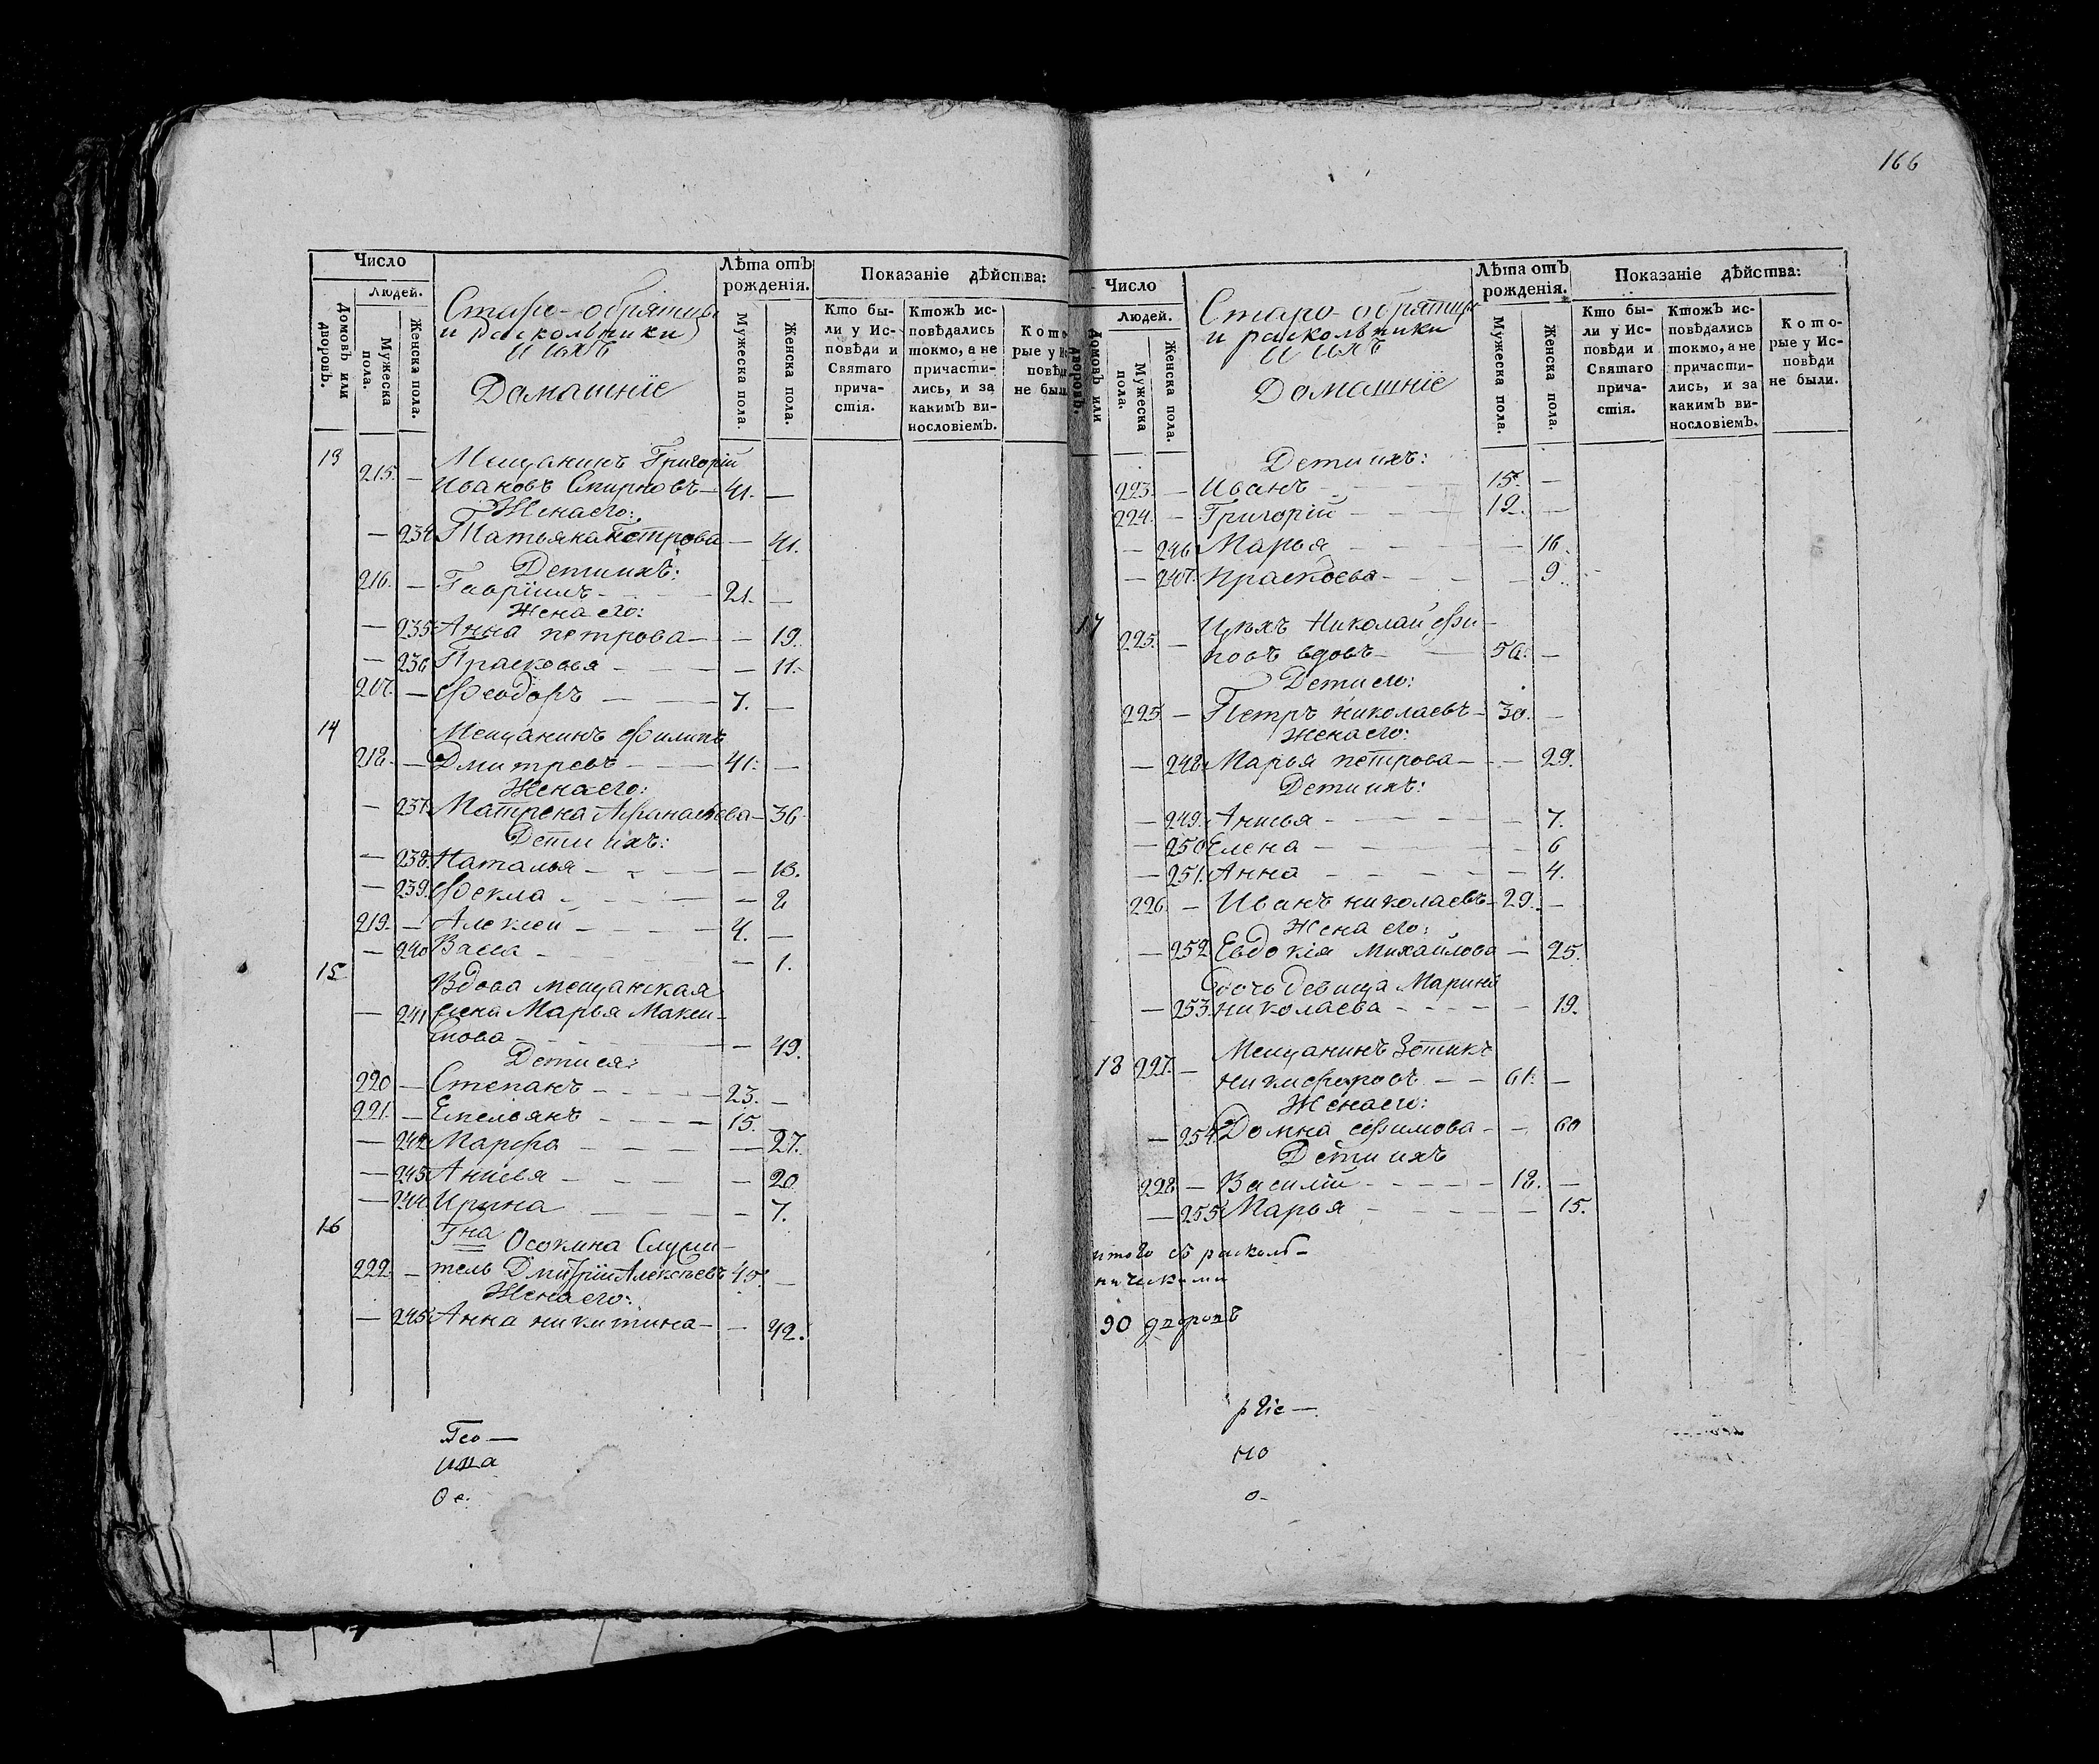 166
Число
Людей.
Домовъ или дворовъ.
Мужеска пола.
Женска пола.
Старо-обрятцы
и раскольники
и ихъ
Домашніе
Лѣта отъ рожденія.
Мужеска пола.
Женска пола.
Показаніе дѣйства:
Кто были у Исповѣди и Святаго причастія.
Ктожъ исповѣдались токмо, а не причастились, и за какимъ винословіемъ.
13 Мещанинъ Григорій
215. — Ивановъ Смирновъ — 41. —
Жена его:
— 234 Татьяна Петрова — 41.
Дети ихъ:
216. — Гаврiилъ — 21. —
Жена его:
— 235 Анна петрова — — 19.
— 236 Прасковья — — 11.
217. — Феодоръ — 7. —
14 Мещанинъ Филипъ
218. — Дмитревъ — 41. —
Жена его:
— 237. Матрена Афанасьева — 36
Дети ихъ:
— 238. Наталья — — 13.
— 239. Фекла — — 2
219. — Алексеи — 4. —
— 240 Васса — — 1.
15 Вдова мещанская
— 241 жена Марья Макси-
мова — — 49.
Дети ея:
220 — Степанъ — 23. —
221. — Емельянъ — 15. —
— 242 Марфа — — 27.
— 243 Анисья — — 20
— 244 Ирина — — 7.
16 Гна Осокина Служи-
222. — тель Дмитрiй Алексѣевъ 45. —
Жена его:
— 245 Анна никитина — — 42.
Гео —
Число
Людей.
Домовъ или дворовъ.
Мужеска пола.
Женска пола.
Старо-обрятцы
и раскольники
и ихъ
Домашніе
Лѣта отъ рожденія.
Мужеска пола.
Женска пола.
Показаніе дѣйства:
Кто были у Исповѣди и Святаго причастія.
Ктожъ исповѣдались токмо, а не причастились, и за какимъ винословіемъ.
Которые у Исповѣди не были.
Дети ихъ:
223. — Иванъ — 15. —
224. — Григорiй — 12. —
— 246 Марья — — 16.
— 247. Прасковья — — 9.
17 Николай
225. — вдовъ — —
Дети его:
225 — Петръ николаевъ — 30. —
Жена его:
— 248. Марья петрова — — 29.
Дети ихъ:
— 249. Анисья — — 7.
— 250 Елена — — 6
— 251. Анна — — 4.
226. — Иванъ николаевъ — 29. —
Жена его:
— 252 Евдокiя михайлова — 25.
дочь девица Марина
— 253. николаева — — 19.
18 227. — Мещанинъ
никифоровъ — 61. —
Жена его:
— 254. Домна ефимова — — 60
Дети ихъ
228 — Василiй — 18. —
— 255 Марья — — 15.
итого съ расколь-
ничими
90 дворовъ
но
о-